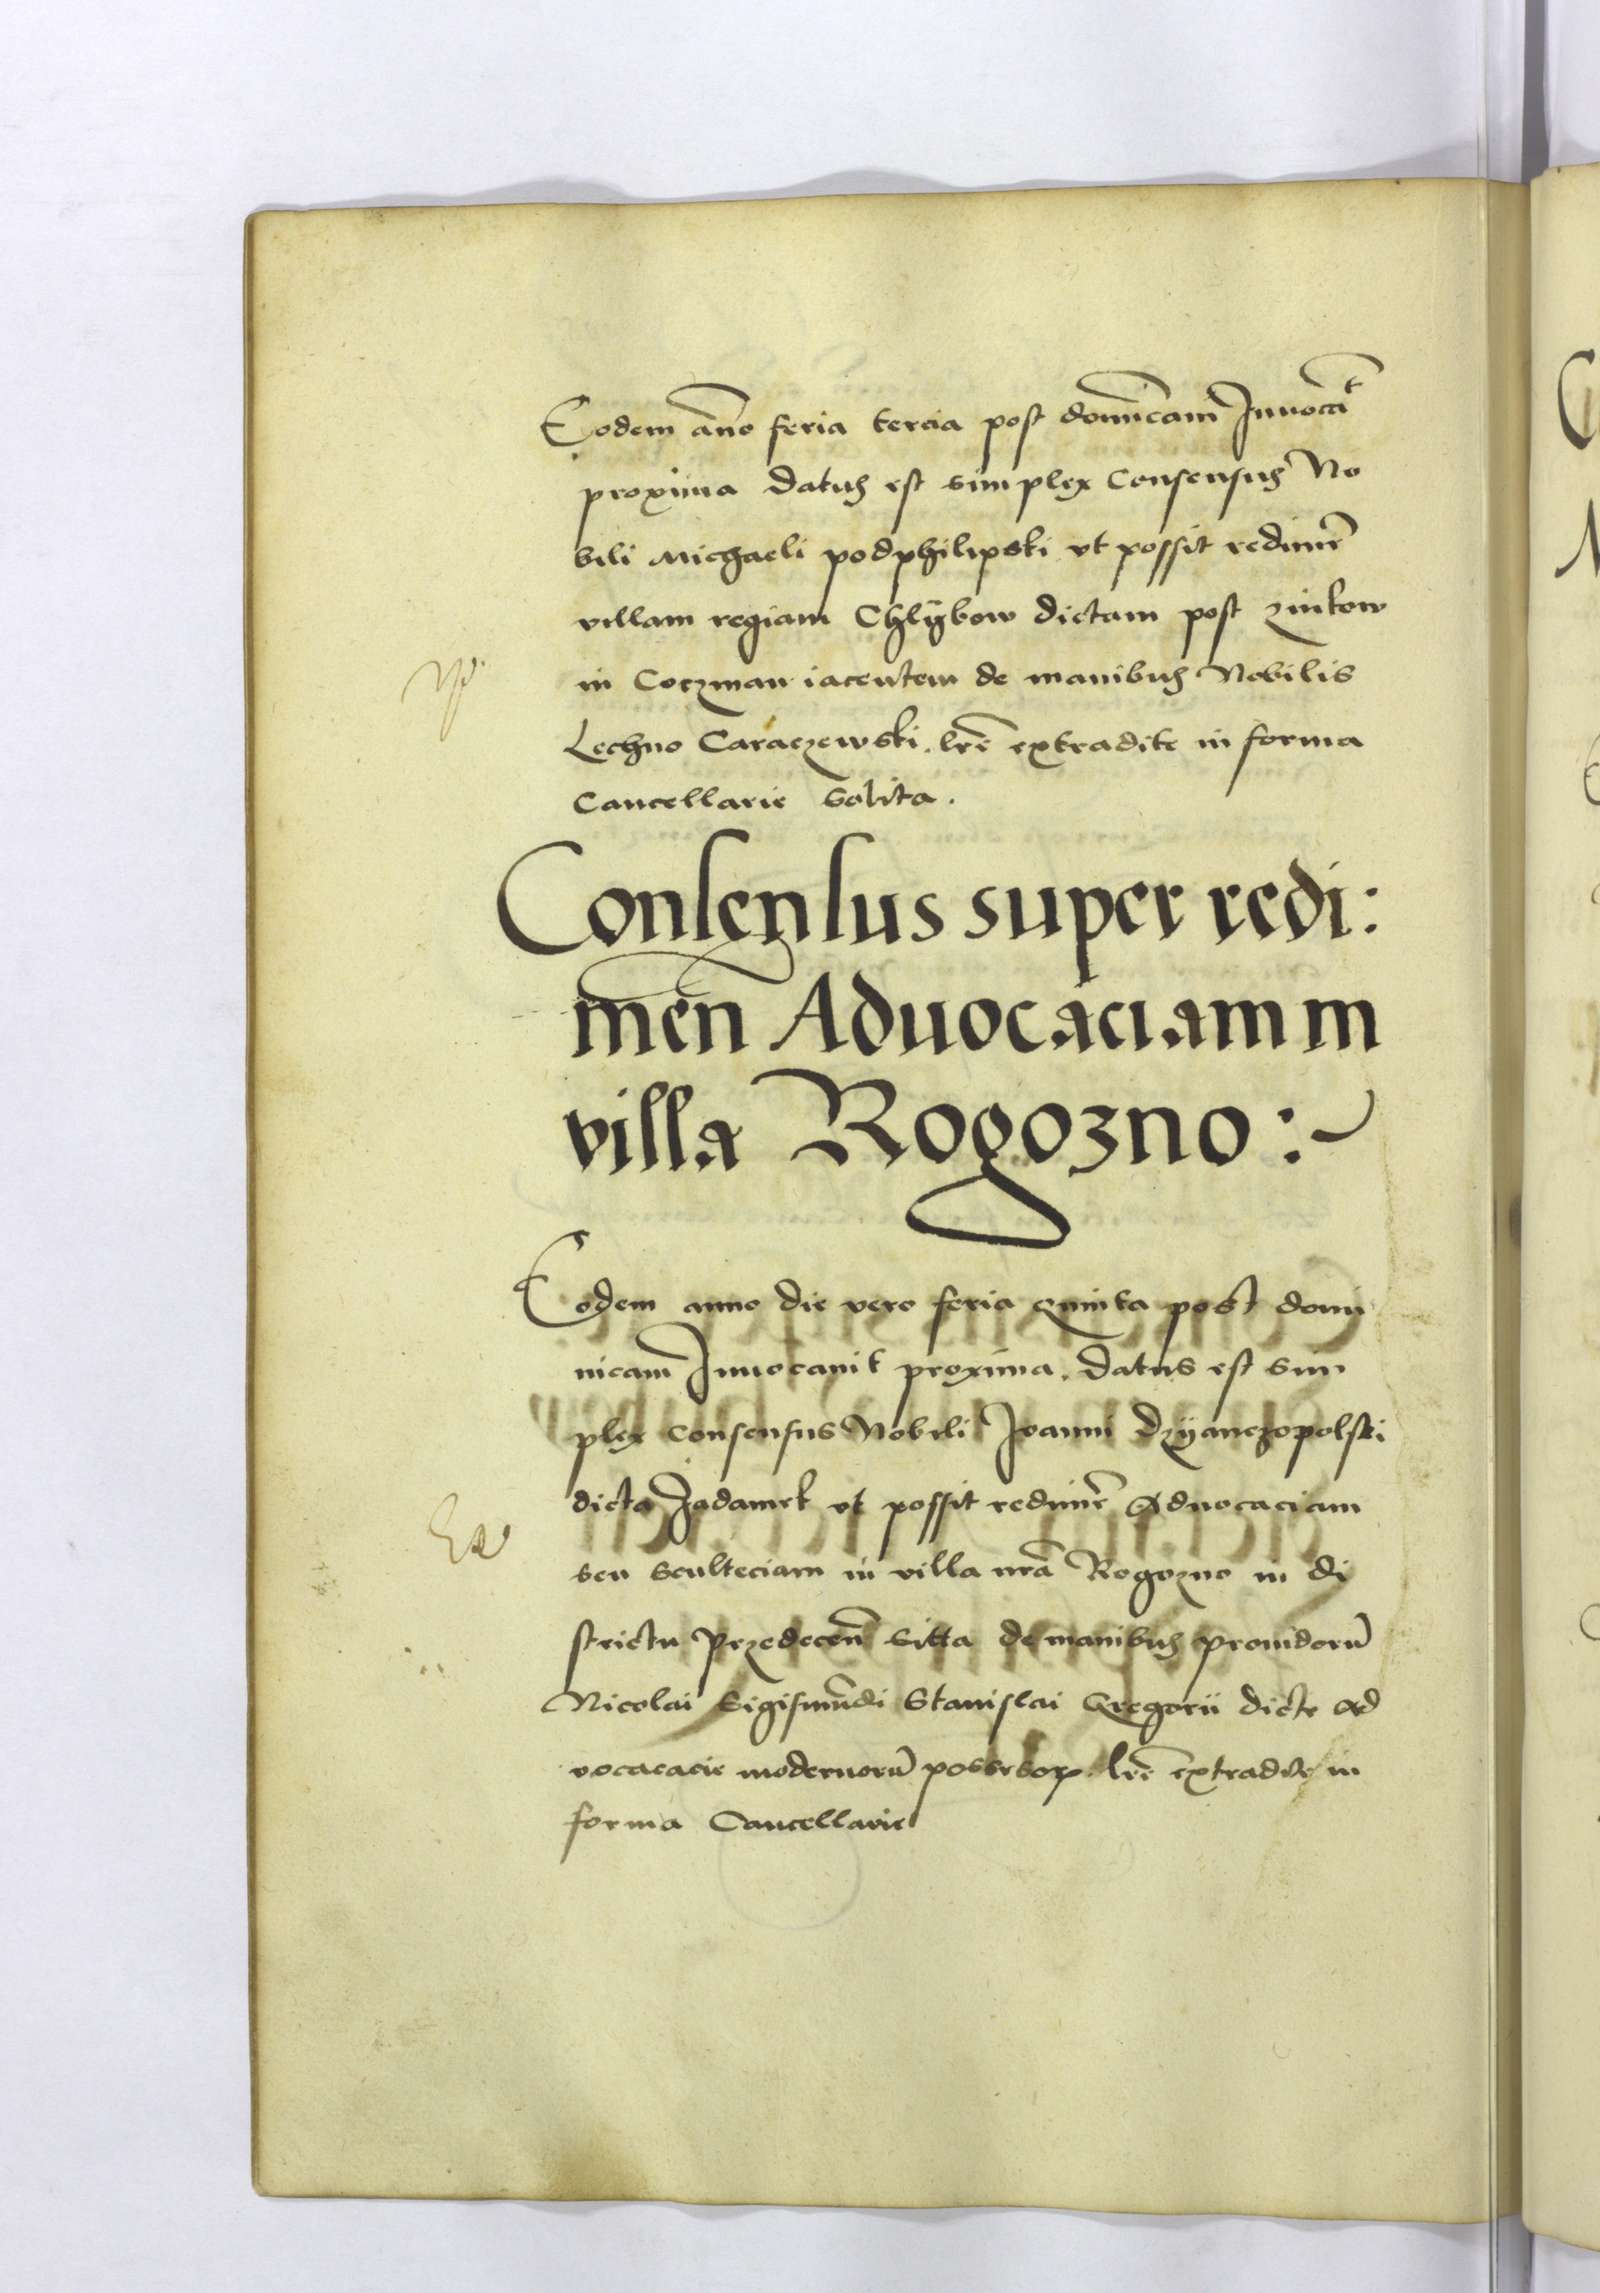 Eodem año feria tercia post domīcam Inuocāt
proxima datus est simplex Consensus No
bili Michaeli podphilipski vt possit redimēr
villam regiam Chlÿbow dictam post zinkow
in Coczman iacentem de manibus Nobilis
Lechno Caraczewski. lrē extradite in forma
Cancellarie solita.
Consensus super redi:
men̄ Aduocaciam in
villa Rogozno :~
Eodem anno die vero feria quinta post domi
nicam Inuocauit proxima. datus est sim
plex consensus Nobili Joanni Dzÿanczopolski
dicta Jadamek vt possit redimēr Aduocaciam
seu sculteciam in villa nrā Rogozno in di
strictu Przedecen̄ sitta de manibus prouidorū
Nicolai Sigismūdi Stanislai Gregorii dicte Ad
vocacacie modernorū possesor. lrē extradite in
forma Cancellarie